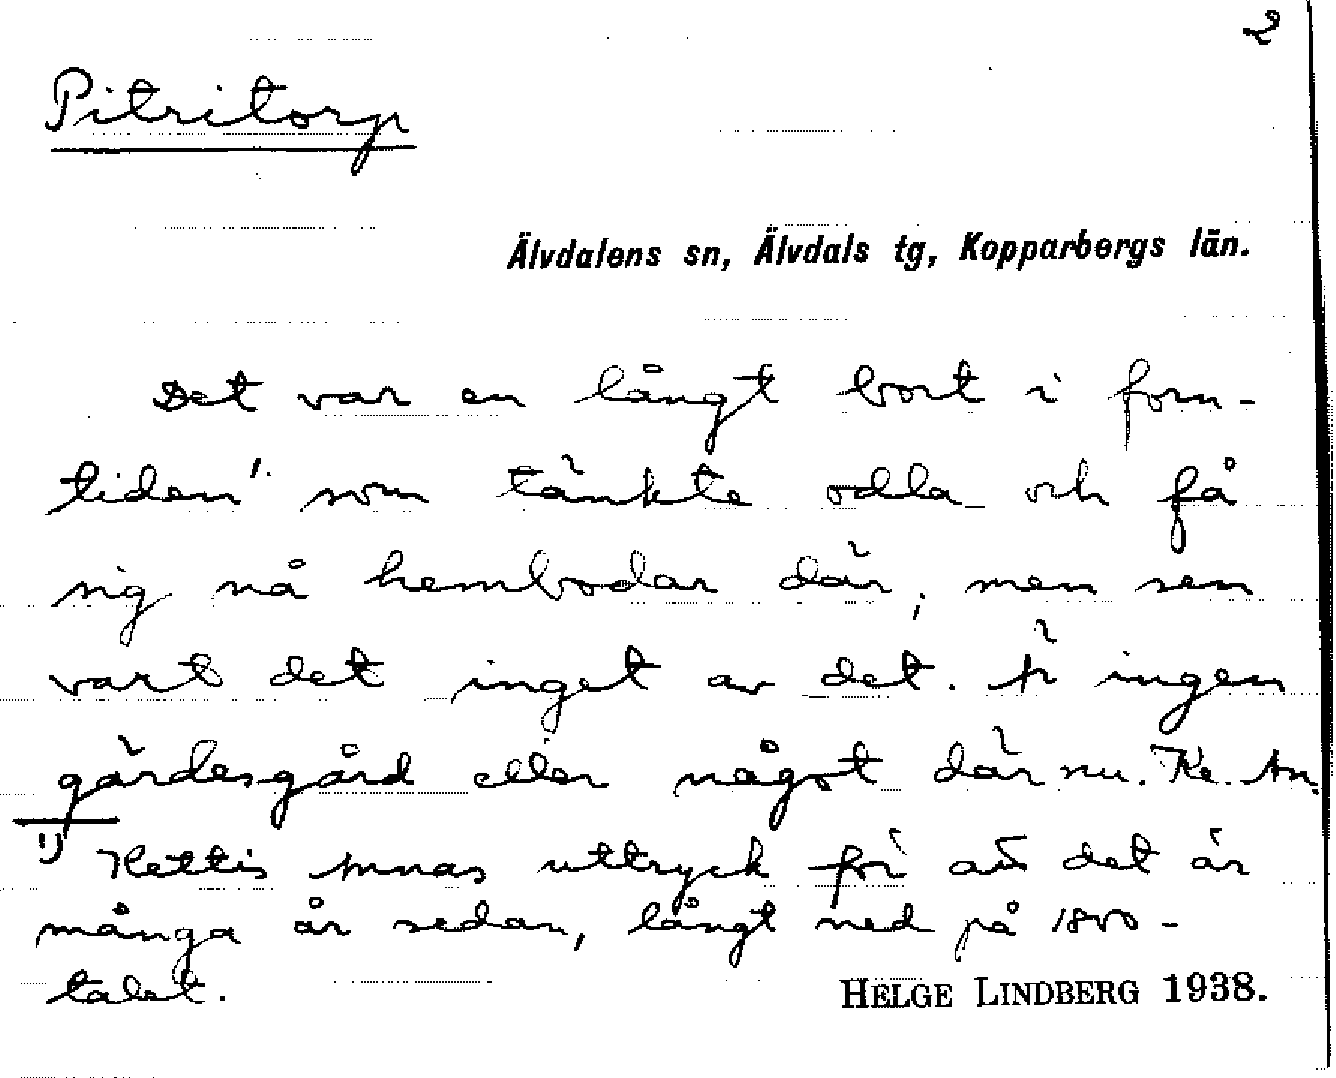 2
Pitritorp
Älvdalens sn, Älvdals tg, Kopparbergs län.
Det var en långt bort i forn-
tiden¹⁾ som tänkte odla och få
sig nå hembodar där, men sen
vart det inget av det. Är ingen
gärdesgård eller något där nu. Ke. An.
1) Kettis Annas uttryck för att det är
många år sedan, långt ned på 1800-
talet.
HELGE LINDBERG 1938.